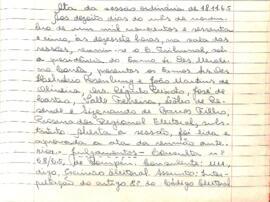 Ata da sessão ordinária de 18.11.65
Aos dezoito dias do mês de novem-
bro de um mil novecentos e sessenta
e cinco, às dezesseis horas, na sala das
sessões, reuniu-se o E. Tribunal, sob
a presidência do Exmo Sr. Des. Merolino
Corrêa, presentes os Exmos Srs Drs
Rosenburg e João Martins de
Oliveira, drs. Régulo Peixoto, José de
Castro, Valle Ferreira, Célio de Re-
zende e Fernando de Barros Filho,
Procurador Regional Eleitoral, subs-
tituto. Aberta a sessão, foi lida e
aprovada a ata da reunião ante-
rior. Julgamentos - Consulta nº
68/65, de Pompéu. Consulente: MM.
Juiz, Escrivão Eleitoral. Assunto: Inter-
pretação do artigo 2º do Código Eleitoral